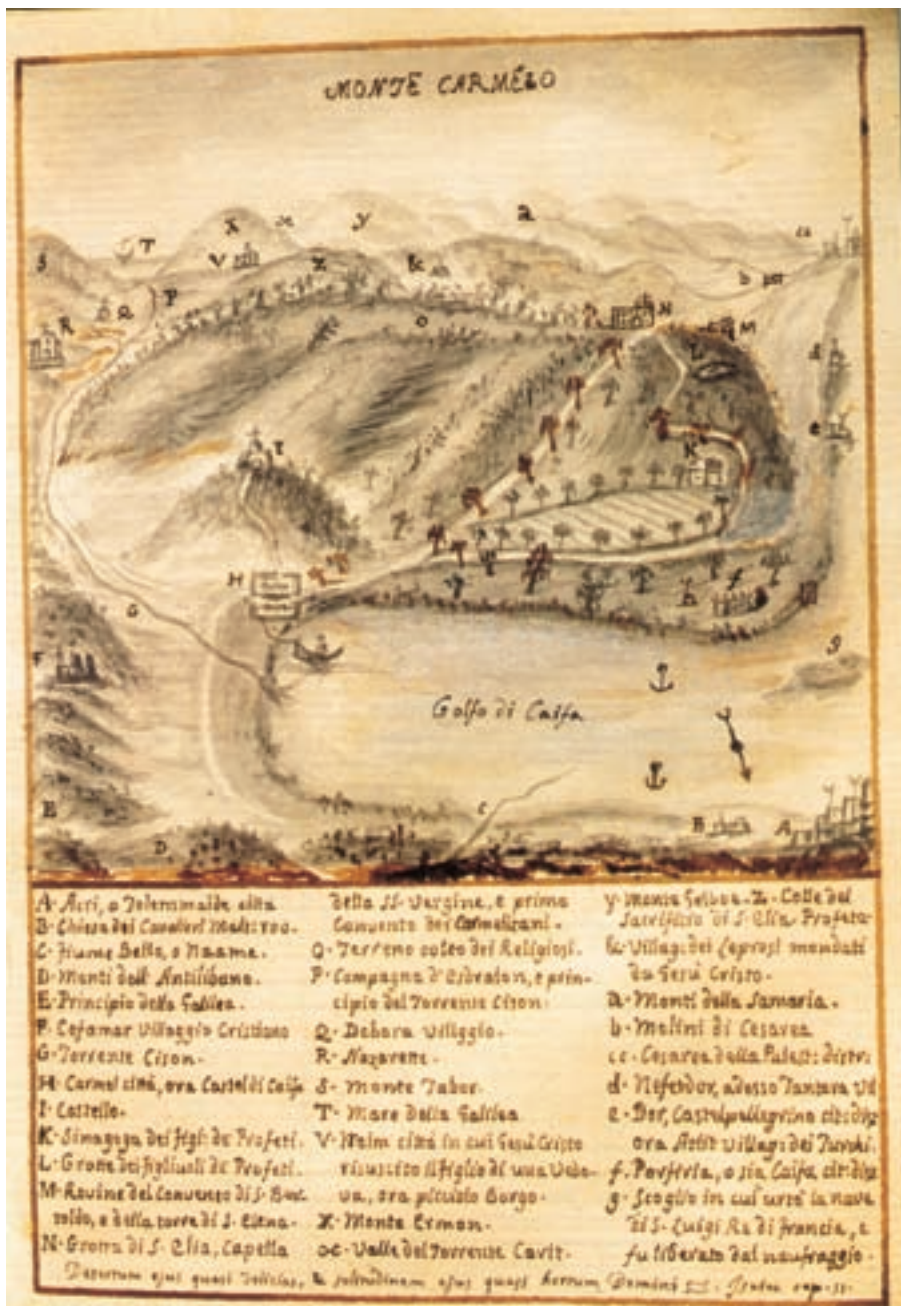 MONTE CARMÉLO
S
T
X
oc
y
a
cc
V
Z
&
b
R
Q
P
O
N
M
L
d
e
I
K
H
h
f
G
F
g
Golfo di Caifa
E
D
C
B
A
A. Acri, o Tolemmaide citta
B. Chiesa dei Cavalieri
C. Fiume Bello, o Naame.
D. Monti dell Antilibano.
E. Principio della Galilea.
F. Cafamar Villaggio Cristiano
G. Torrente Cison.
H. Carmel città, ora Castel di Caifa
I. Castello.
K. Sinagoga dei figl: de Profeti.
L. Grotta dei figliuoli de Profeti.
M. Rovine del Convento di S. Broc
toldo, e della torre di S. Elena.
N. Grotta di S. Elia, Capella
della SS. Vergine, e primo
Convento dei Carmelitani.
O. Terreno colto dei Religiosi.
P. Campagna d'Esdralon, e prin-
cipio del Torrente Cison.
Q. Debora Villggio.
R. Nazarette.
S. Monte Tabor.
T. Mare della Galilea
V. Naim città in cui Gesù Cristo
risuscito il figlio di una Vedo-
va, ora picciolo Borgo.
X. Monte Ermon.
oc. Valle del Torrente Carit.
y. Monte Gelboe. Z. Colle del
Sacrificio di S. Elia Profeta
&. Villag: dei Leprosi mondati
da Gesù Cristo.
a. Monti della Samaria.
b. Molini di Cesarea
cc. Cesarea della Palest: distr:
d. Nefendor, adesso Tantura Vil
e. Dor, Castelpellegrino cit: distr
ora Atlit villag: dei Turchi.
f. Porfiria, o sia Caifa cit: distr
g. Scoglio in cui urtò la nave
di S. Luigi Re di Francia, e
fu liberato dal naufraggio.
Desertum ejus quasi delicias, & solitudinem ejus quasi hortum Domini Isaiae cap. 51.